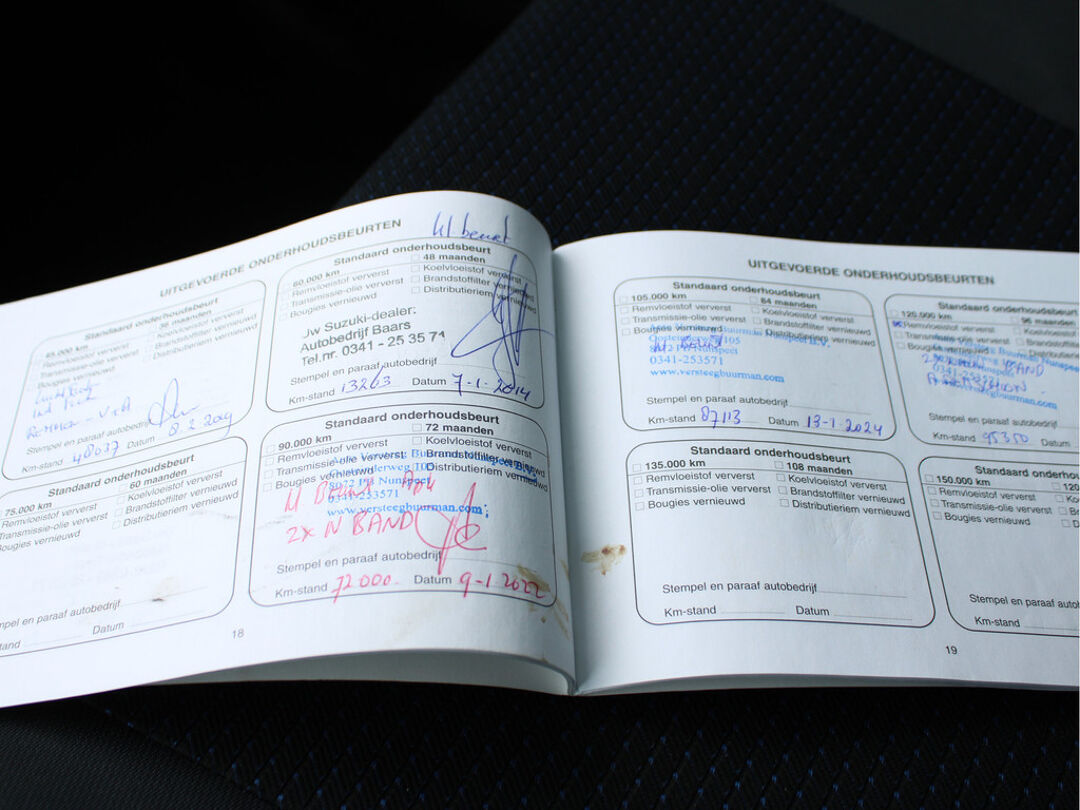 UITGEVOERDE ONDERHOUDSBEURTEN
Standaard onderhoudsbeurt
45.000 km
36 maanden
Remvloeistof ververst
Koelvloeistof ververst
Transmissie-olie ververst
Brandstoffilter vernieuwd
Bougies vernieuwd
Distributieriem vernieuwd
Stempel en paraaf autobedrijf
Km-stand 48037 Datum
Standaard onderhoudsbeurt
75.000 km
60 maanden
Remvloeistof ververst
Koelvloeistof ververst
Transmissie-olie ververst
Brandstoffilter vernieuwd
Bougies vernieuwd
Distributieriem vernieuwd
mpel en paraaf autobedrijf
tand
Datum
beurt
Standaard onderhoudsbeurt
60.000 km
48 maanden
Remvloeistof ververst
Koelvloeistof ververst
Transmissie-olie ververst
Brandstoffilter vernieuwd
Bougies vernieuwd
Distributieriem vernieuwd
Uw Suzuki-dealer:
Autobedrijf Baars
Tel.nr. 0341 - 25 35 71
Stempel en paraaf autobedrijf
Km-stand 13263 Datum 7-1-2014
Standaard onderhoudsbeurt
90.000 km
72 maanden
Remvloeistof ververst
Koelvloeistof ververst
Transmissie-olie ververst
Brandstoffilter vernieuwd
Bougies vernieuwd
Distributieriem vernieuwd
8072 PH Nunspeet
0341-253571
www.versteegbuurman.com
2x N BAND
Stempel en paraaf autobedrijf
Km-stand 72000 Datum 9-1-2022
18
UITGEVOERDE ONDERHOUDSBEURTEN
Standaard onderhoudsbeurt
105.000 km
84 maanden
Remvloeistof ververst
Koelvloeistof ververst
Transmissie-olie ververst
Brandstoffilter vernieuwd
Bougies vernieuwd
Distributieriem vernieuwd
Buurman Nunspeet B.V.
0341-253571
www.versteegbuurman.com
Stempel en paraaf autobedrijf
Km-stand 87113 Datum 13-1-2024
Standaard onderhoudsbeurt
120.000 km
96 maanden
Remvloeistof ververst
Koelvloeistof
Transmissie-olie ververst
Brandstoffilter
Distributieriem
Stempel en paraaf autobedrijf
Km-stand 95350 Datum
Standaard onderhoudsbeurt
135.000 km
108 maanden
Remvloeistof ververst
Koelvloeistof ververst
Transmissie-olie ververst
Brandstoffilter vernieuwd
Bougies vernieuwd
Distributieriem vernieuwd
Stempel en paraaf autobedrijf
Km-stand
Datum
Standaard onderhoudsb
150.000 km
120
Remvloeistof ververst
Koe
Transmissie-olie ververst
Bra
Bougies vernieuwd
D
Stempel en paraaf autobe
Km-stand
19